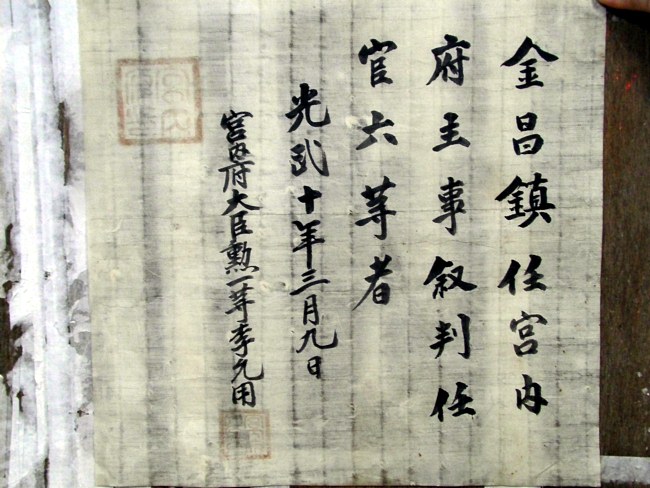 金昌鎮任宮內
府主事叙判任
官六等者
光武十年三月九日
宮內府大臣勳一等李允用